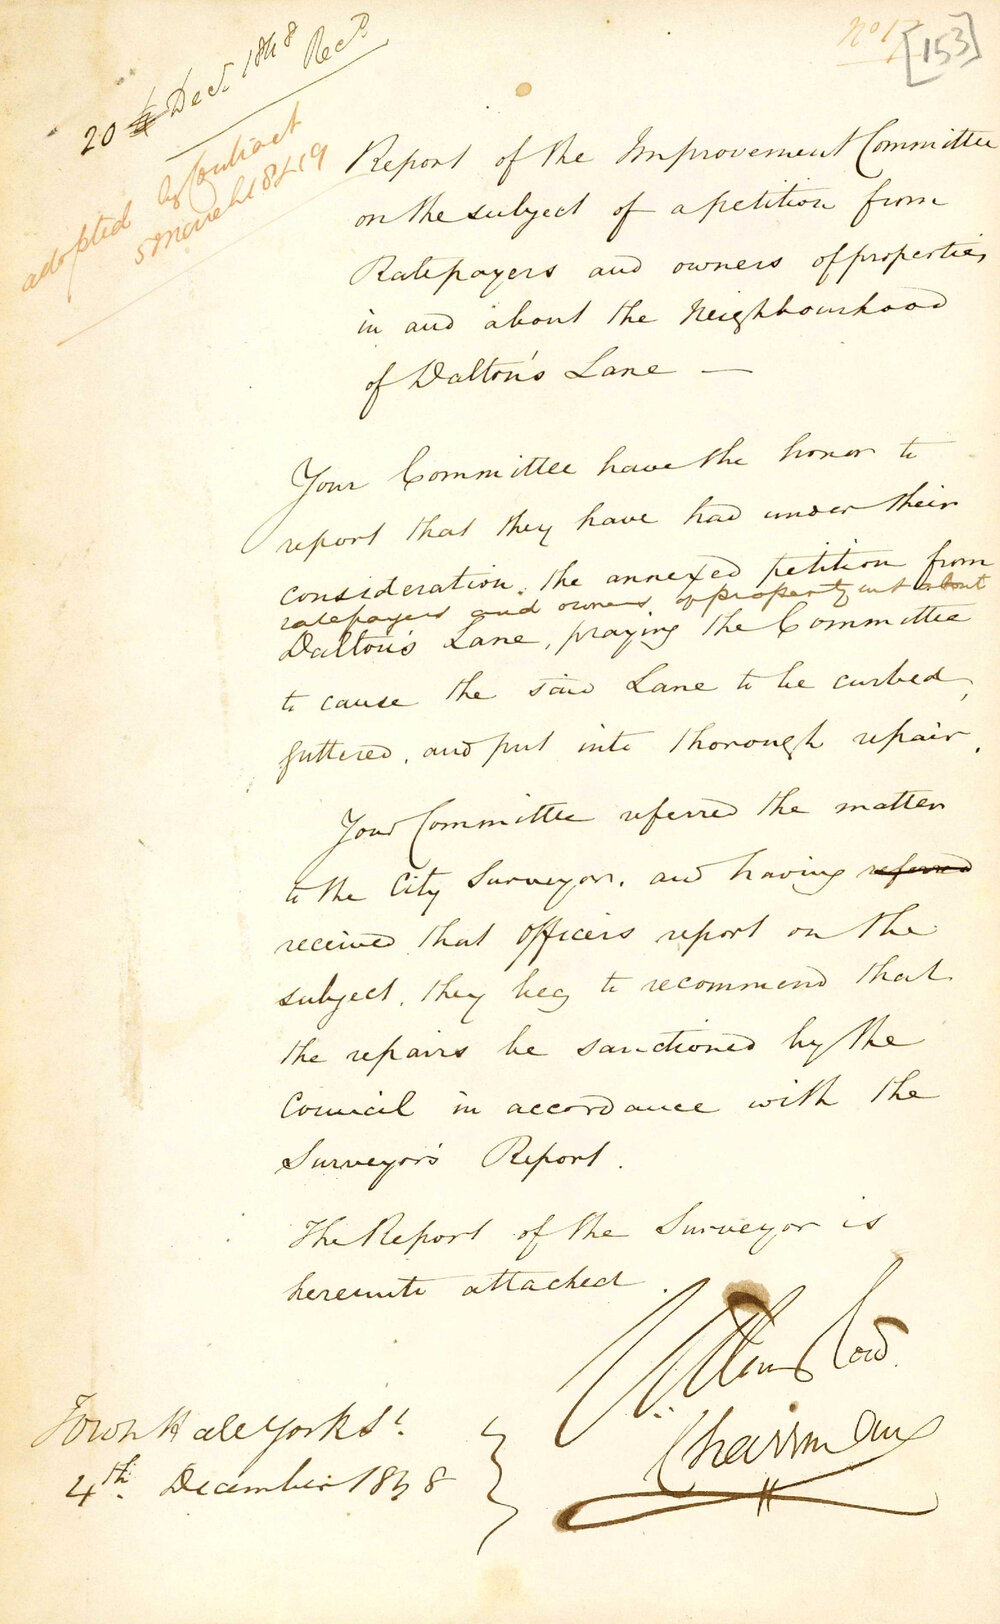 20 Decr. 1848
Recd
No 17
[153]
adopted by Contract
5 March 1849
Report of the Improvement Committee
on the subject of a petition from
Ratepayers and owners of properties
in and about the Neighbourhood
of Dalton's Lane —
Your Committee have the honor to
report that they have had under their
consideration, the annexed petition from
ratepayers and owners of property in & about
Dalton's Lane, praying the Committee
to cause the said Lane to be curbed,
guttered, and put into thorough repair.
Your Committee referred the matter
to the City Surveyor, and having referred
received that officers report on the
subject, they beg to recommend that
the repairs be sanctioned by the
Council in accordance with the
Surveyor's Report.
The Report of the Surveyor is
herewith attached.
Chairman
Town Hall York St.
4th. December 1848